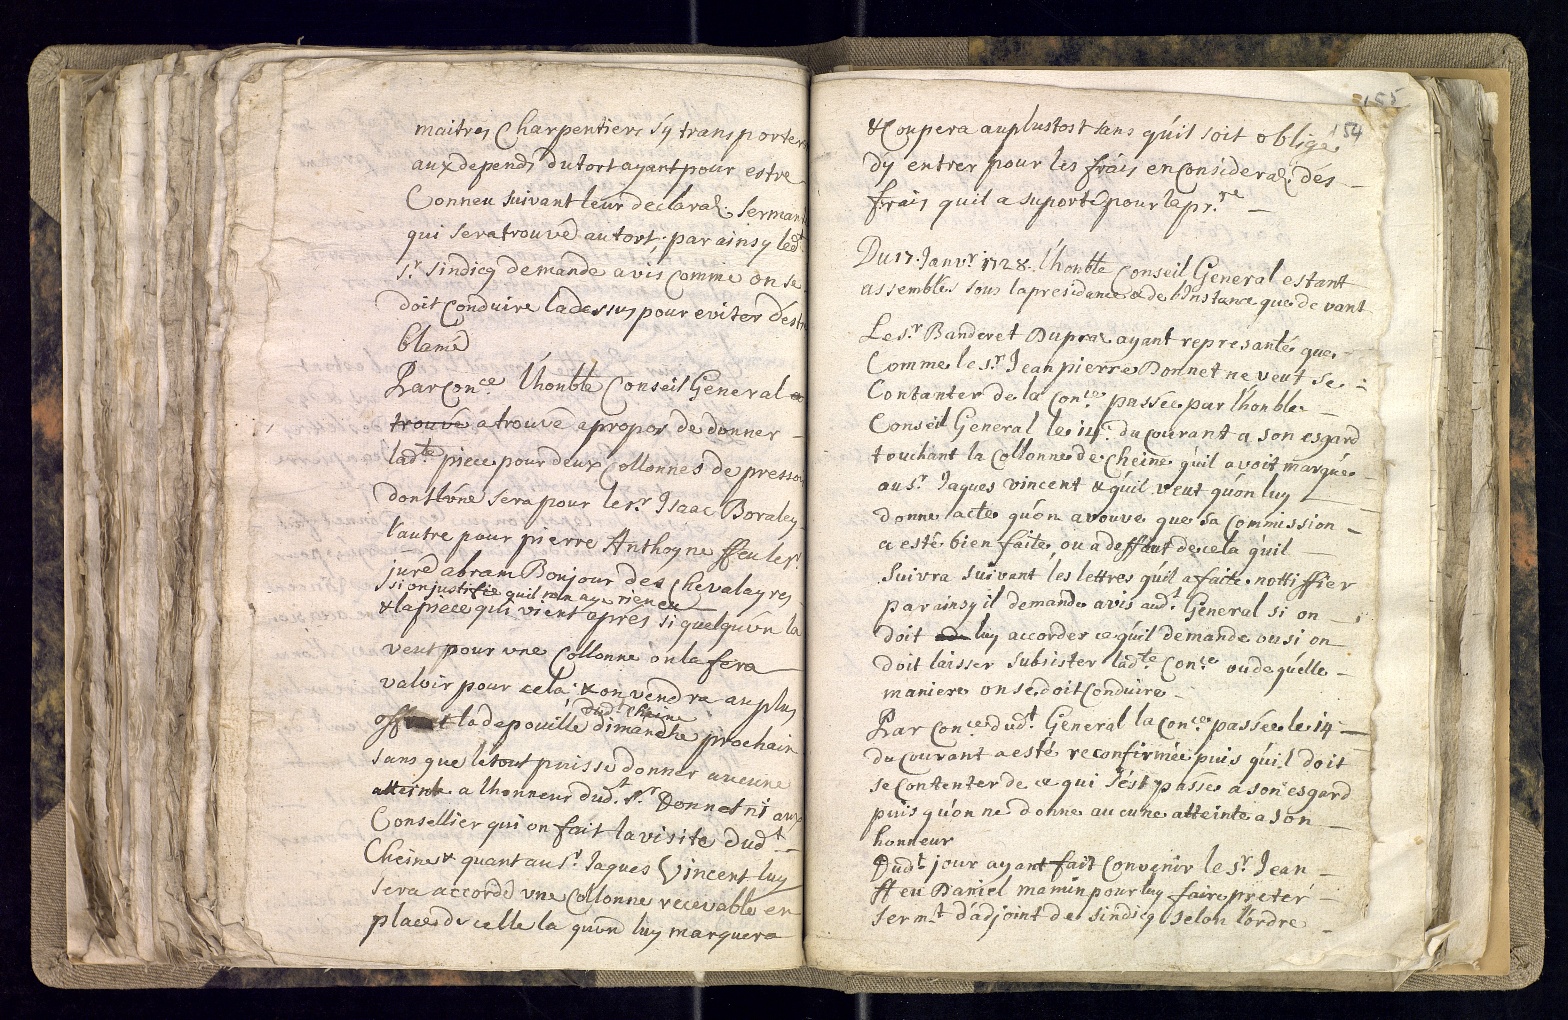 maitres Charpentiers s'y transporter
aux depends du tort ayant pour estre
Conneu suivant leur declara.on serman
qui sera trouvé au tort, par ainsy led.t
S.r sindicq demande avis comme on se
doit Conduire la dessus pour eviter d'estre
blamé
Par Con.ce l'honble Conseil General a
trouvé a trouvé a propos de donner
lad.te piece pour deux Collonnes de presso
dont l'une sera pour le s.r Isaac Boraley
l'autre pour pierre Anthoyne ffeu le s.r
juré abram Bonjour des Chevalayres
si on justiffie quil n'en aye rien eu
& la piece qui vient apres si quelqu'vn la
veut pour vne Collonne on la fera
valoir pour cela & on vendra au plus
dud.t cheine
offrant la depouille dimanche prochain
sans que le tout puisse donner aucune
atteinte a l'honneur dud.t S.r Donnet ni aux
Consellier qui on fait la visite dud.t
Cheine & quant au S.r Jaques Vincent luy
sera accordé vne Collonne recevable en
place de celle la qu'vn luy marquera
155
154
& Coupera au plustost sans qu'il soit obligé
d'y entrer pour les frais en Considera.on des
frais qu'il a suporté pour le pr.re
Du 17. Janv.r 1728. l'honble Conseil General estant
assemblés sous la presidence & de l'instance que devant
Le s.r Banderet Dupra ayant represanté que
Comme le s.r Jean pierre Donnet ne veut se
Contanter de la Con.ce passée par l'honble
Conseil General le 14.e du courant a son esgard
touchant la Collonne de Cheine qu'il avoit marquée
au s.r Jaques vincent & qu'il veut qu'on luy
donne acte qu'on avouve que sa Commission
a esté bien faite, ou a deffaut de cela qu'il
suivra suivant les lettres qu'il a faite nottiffier
par ainsy il demande avis aud.t General si on
doit luy accorder ce qu'il demande ou si on
doit laisser subsister lad.te Con.ce ou de quelle
maniere on se doit Conduire
Par Con.ce dud.t General la Con.ce passée le 14
du Courant a esté reconfirmée puis qu'il doit
se Contenter de ce qui s'est passé a son esgard
puis qu'on ne donne aucune atteinte a son
honneur
Dud.t jour ayant fait Convenir le s.r Jean
ffeu Daniel mamin pour luy faire preter
serm.t d'adjoint de sindicq selon l'ordre